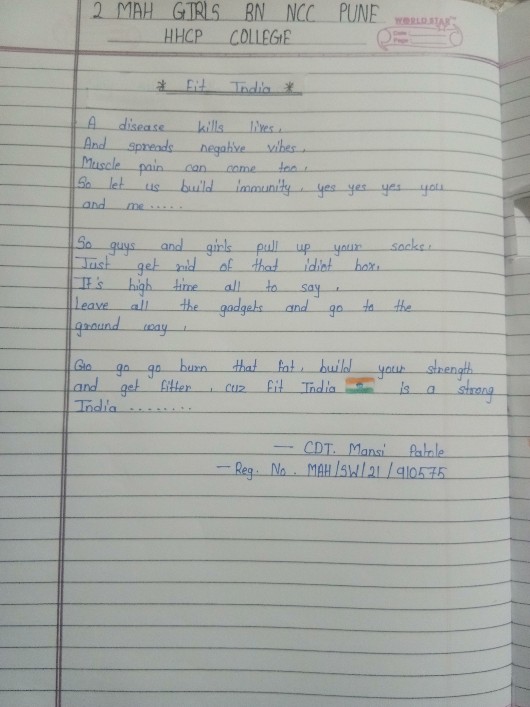 2 MAH GIRLS BN NCC PUNE
HHCP COLLEGE
WORLD STAR
Date :
Page :
* Fit India *
A disease kills lives,
And spreads negative vibes,
Muscle pain can come too,
So let us build immunity, yes yes yes you
and me .....
So guys and girls pull up your socks,
Just get rid of that idiot box,
It's high time all to say,
Leave all the gadgets and go to the
ground way,
Go go go burn that fat, build your strength
and get fitter, cuz Fit India is a strong
India ........
— CDT. Mansi
— Reg. No. MAH/SW/21/910575